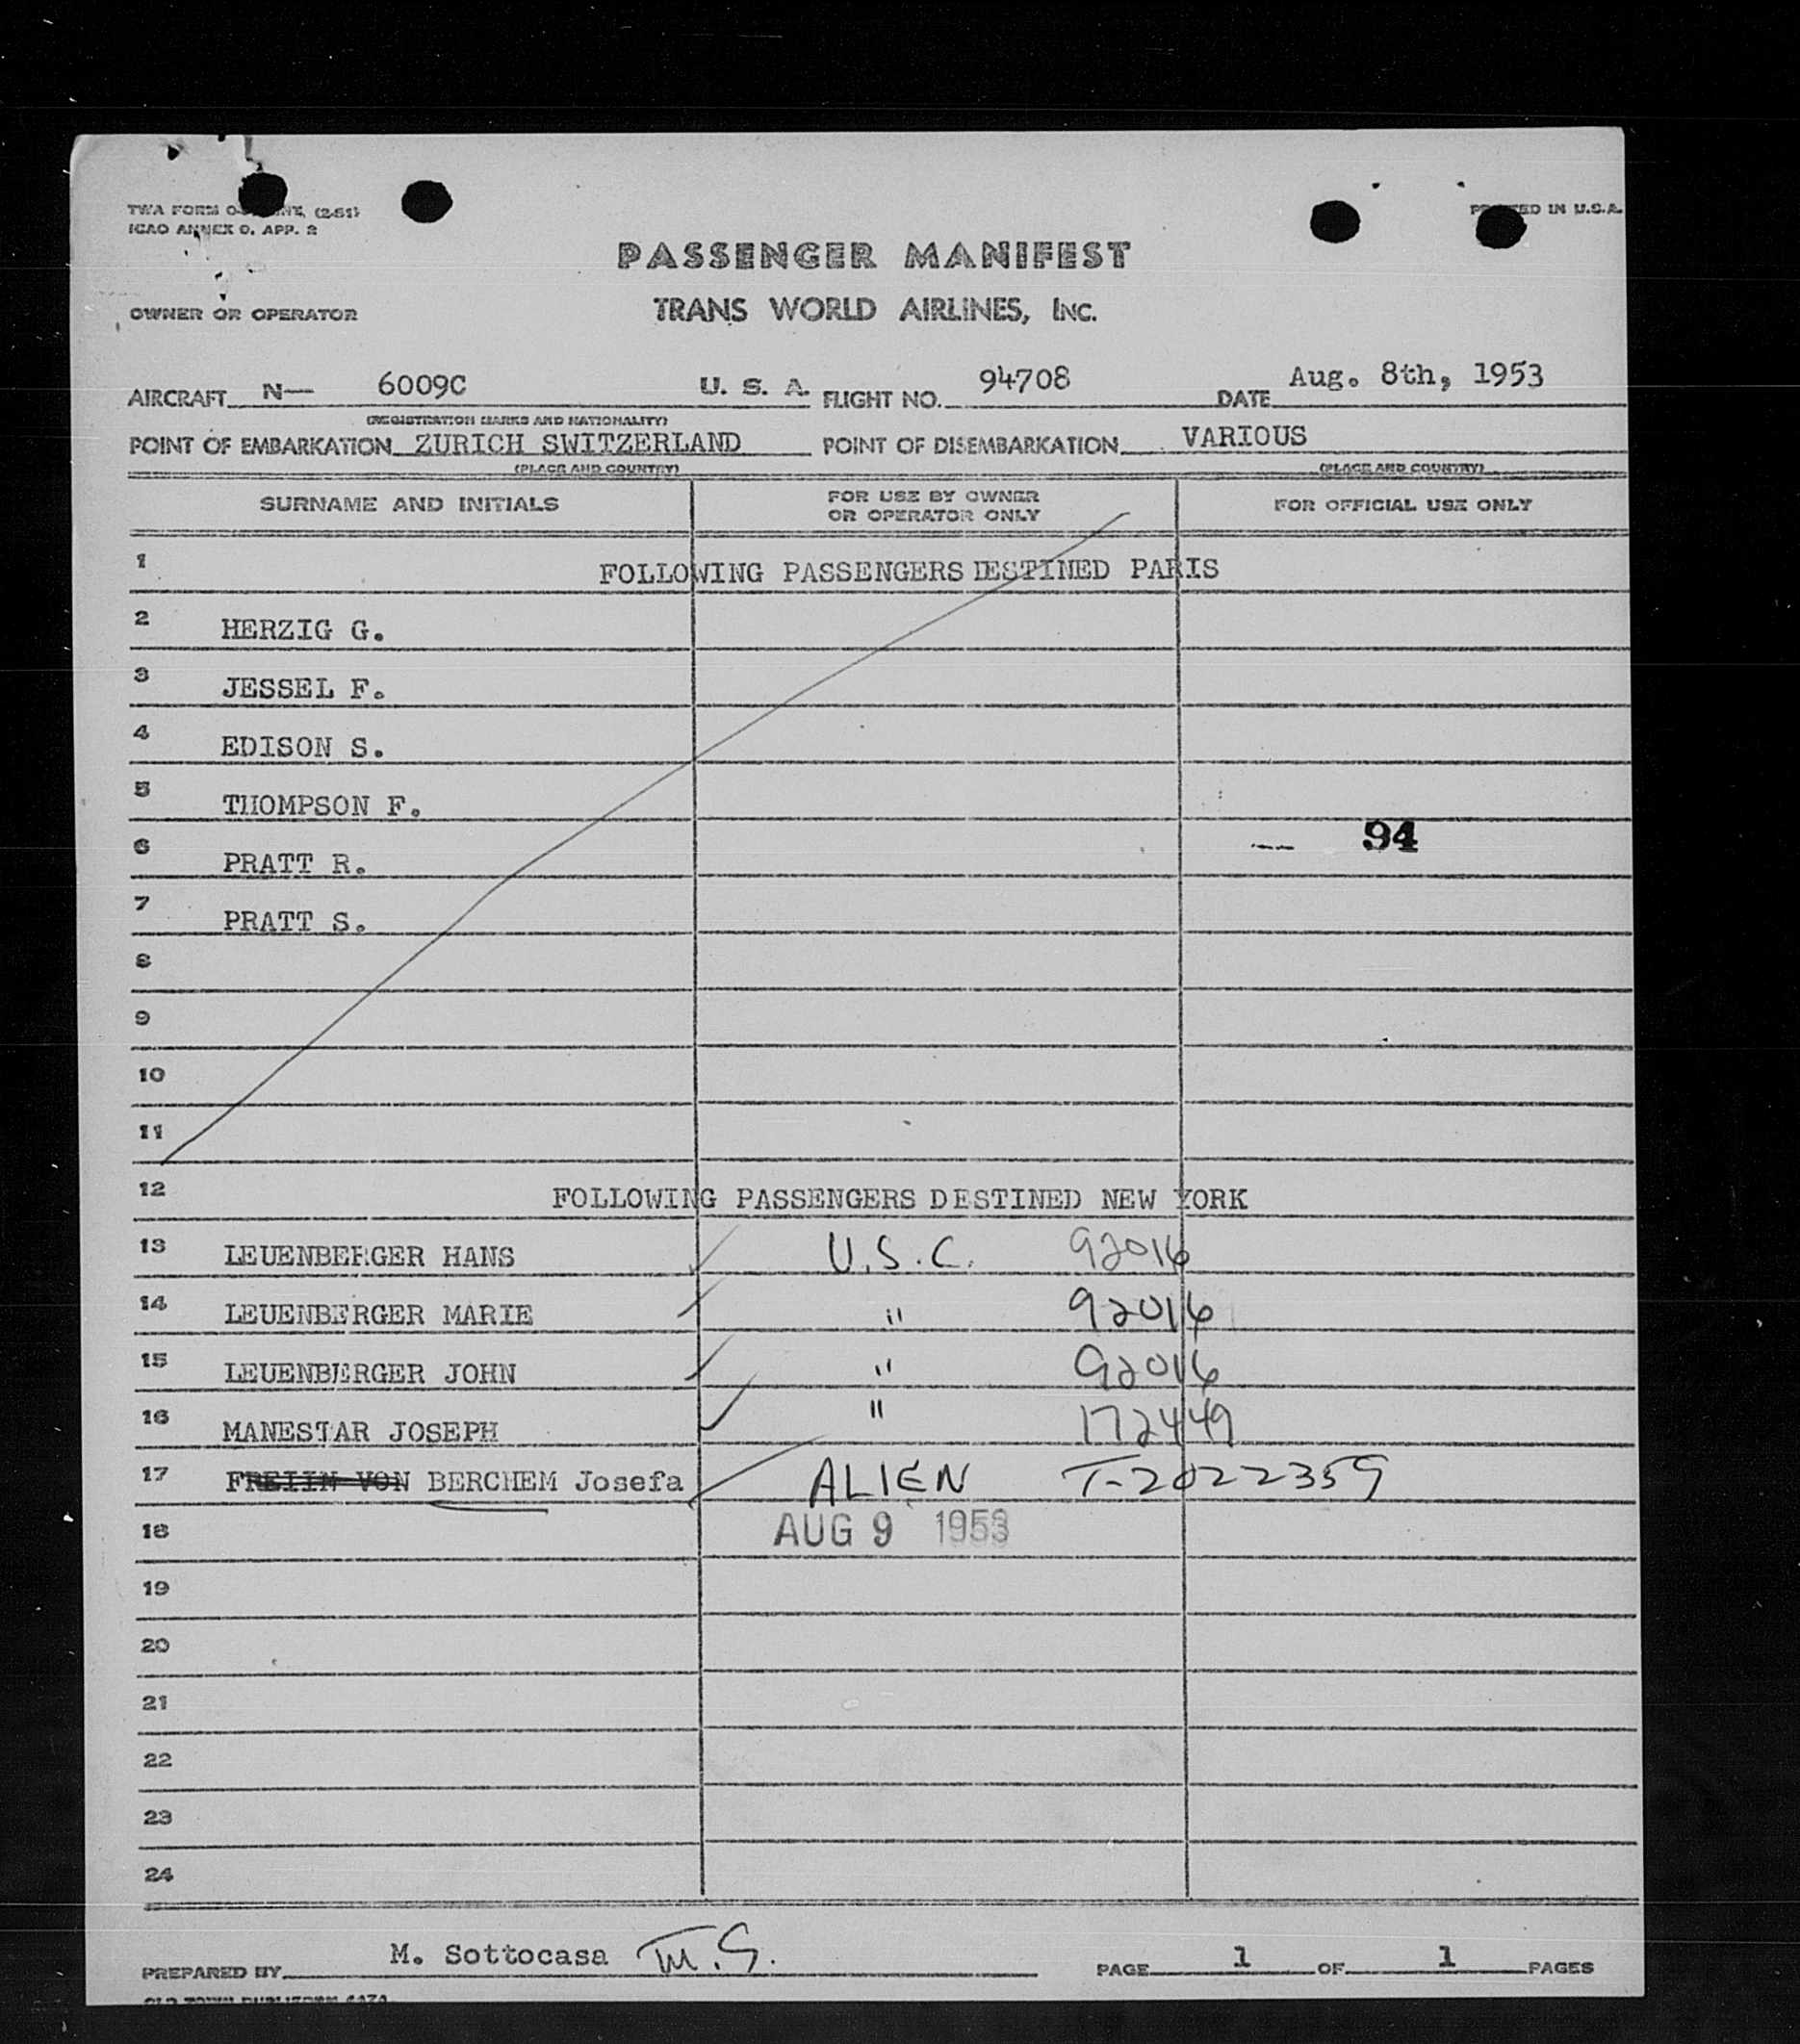 TWA FORM O- INT. (2-51)
ICAO ANNEX 9, APP. 2
PRINTED IN U.S.A.
PASSENGER MANIFEST
OWNER OR OPERATOR
TRANS WORLD AIRLINES, INC.
AIRCRAFT N— 6009C U. S. A. FLIGHT NO. 94708 DATE Aug. 8th, 1953
(REGISTRATION MARKS AND NATIONALITY)
POINT OF EMBARKATION ZURICH SWITZERLAND POINT OF DISEMBARKATION VARIOUS
(PLACE AND COUNTRY) (PLACE AND COUNTRY)
SURNAME AND INITIALS FOR USE BY OWNER OR OPERATOR ONLY FOR OFFICIAL USE ONLY
1 FOLLOWING PASSENGERS DESTINED PARIS
2 HERZIG G.
3 JESSEL F.
4 EDISON S.
5 THOMPSON F.
6 PRATT R. 94
7 PRATT S.
8
9
10
11
12 FOLLOWING PASSENGERS DESTINED NEW YORK
13 LEUENBERGER HANS U.S.C. 92016
14 LEUENBERGER MARIE " 92016
15 LEUENBERGER JOHN " 92016
16 MANESTAR JOSEPH " 172449
17 FREIIN VON BERCHEM Josefa ALIEN T-2022359
18 AUG 9 1953
19
20
21
22
23
24
PREPARED BY M. Sottocasa M.S. PAGE 1 OF 1 PAGES